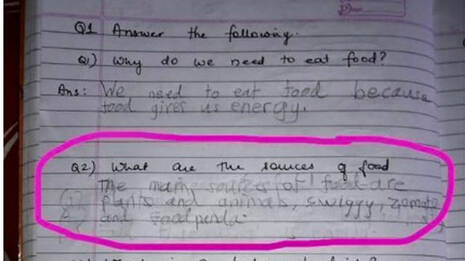 Q1 Answer the following.
Q1) Why do we need to eat food?
Ans: We need to eat food because
food gives us energy.
Q2) What are the sources of food
The main sources of food are
plants and animals, swiggy, zomato
and foodpanda